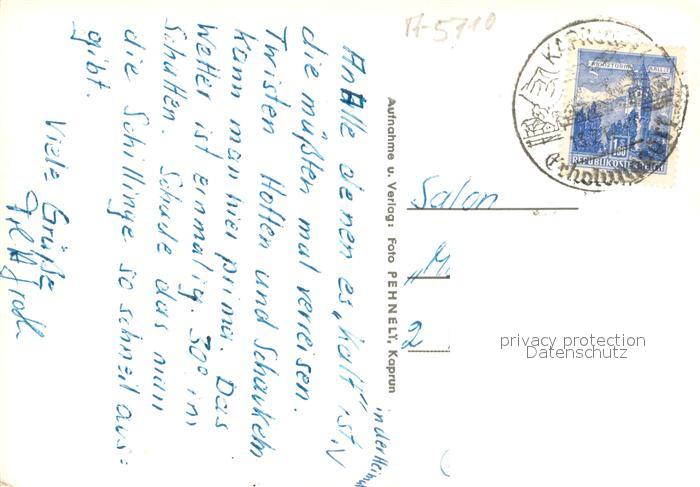 An Alle denen es „kalt" ist. √
in der Heimat
die müßten mal verreisen.
Twisten Hotten und Schaukeln
kann man hier prima. Das
Wetter ist einmalig. 30° im
Schatten. Schade das man
die Schillinge so schnell aus=
gibt.
Viele Grüße
Aufnahme u. Verlag: Foto PEHNELT, Kaprun
A-5710
KAPRUN
Erholungsort
1.50
REPUBLIK ÖSTERREICH
Salon
„M
2
privacy protection
Datenschutz